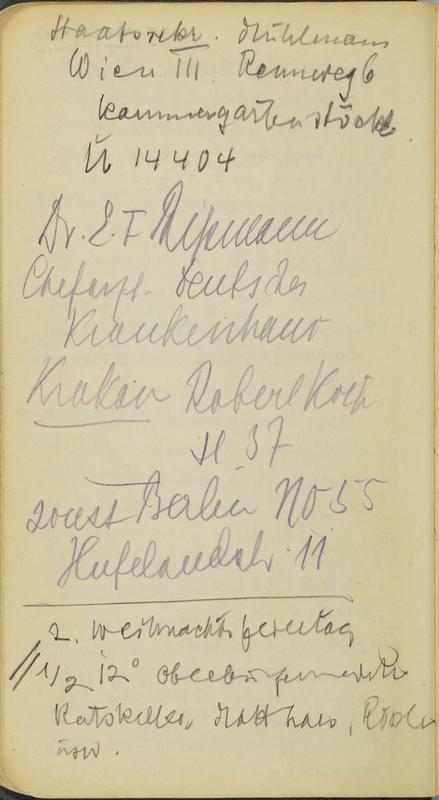 Staatssekr. Mühlmann
Wien III. Rennweg 6
Kammergartenstöckl
Ü 14404
Dr. E. F.
Chefarzt - Deutsches
Krankenhaus
Krakau Robert Koch
St 37
sonst Berlin NO 55
Hufelandstr. 11
2. Weihnachtsfeiertag
1/2 12° Oberbürgermeister
Ratskeller, Matthaes,
usw.